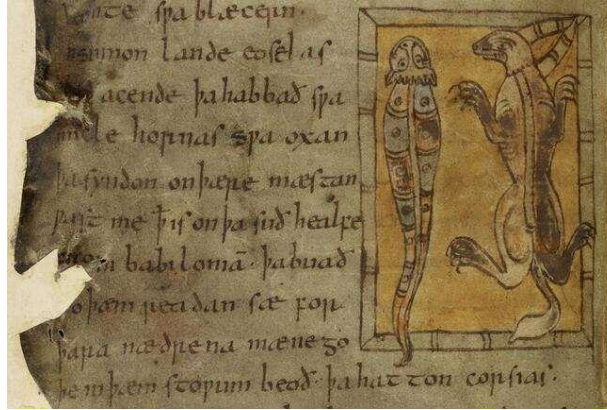 sƿa blæce in
lande eoselas
acende þa habbað sƿa
hornas sƿa oxan
þa syndon on þære mæstan
ꝥ is on þa suð healfe
babiloniā · þa buað
þæm readan sæ for
þara nædrena mænego
þe in þæm stoƿum beoð · þa hatton corsias ·